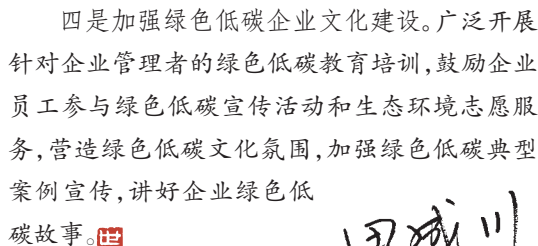 四是加强绿色低碳企业文化建设。广泛开展
针对企业管理者的绿色低碳教育培训,鼓励企业
员工参与绿色低碳宣传活动和生态环境志愿服
务,营造绿色低碳文化氛围,加强绿色低碳典型
案例宣传,讲好企业绿色低
碳故事。
田成川